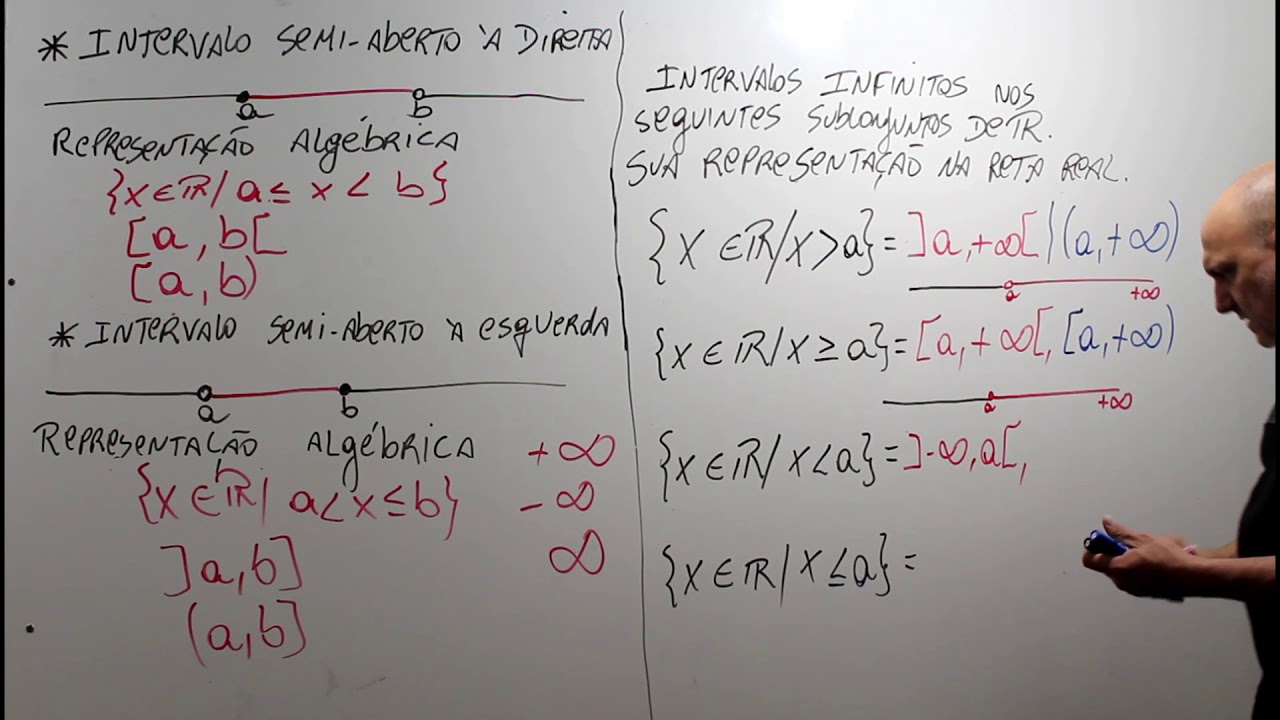 * INTERVALO SEMI-ABERTO À DIREITA
a b
REPRESENTAÇÃO ALGÉBRICA
{x ∈ ℝ / a ≤ x < b}
[a, b[
[a, b)
* INTERVALO SEMI-ABERTO À ESQUERDA
a b
REPRESENTAÇÃO ALGÉBRICA
+∞
b
{x ∈ ℝ / a < x ≤ b}
-∞
]a, b]
∞
(a, b]
INTERVALOS INFINITOS NOS
SEGUINTES SUBCONJUNTOS DE ℝ.
SUA REPRESENTAÇÃO NA RETA REAL.
{x ∈ ℝ / x > a} = ]a, +∞[ | (a, +∞)
a +∞
{x ∈ ℝ / x ≥ a} = [a, +∞[, [a, +∞)
a +∞
{x ∈ ℝ / x < a} = ]-∞, a[,
{x ∈ ℝ / x ≤ a} =